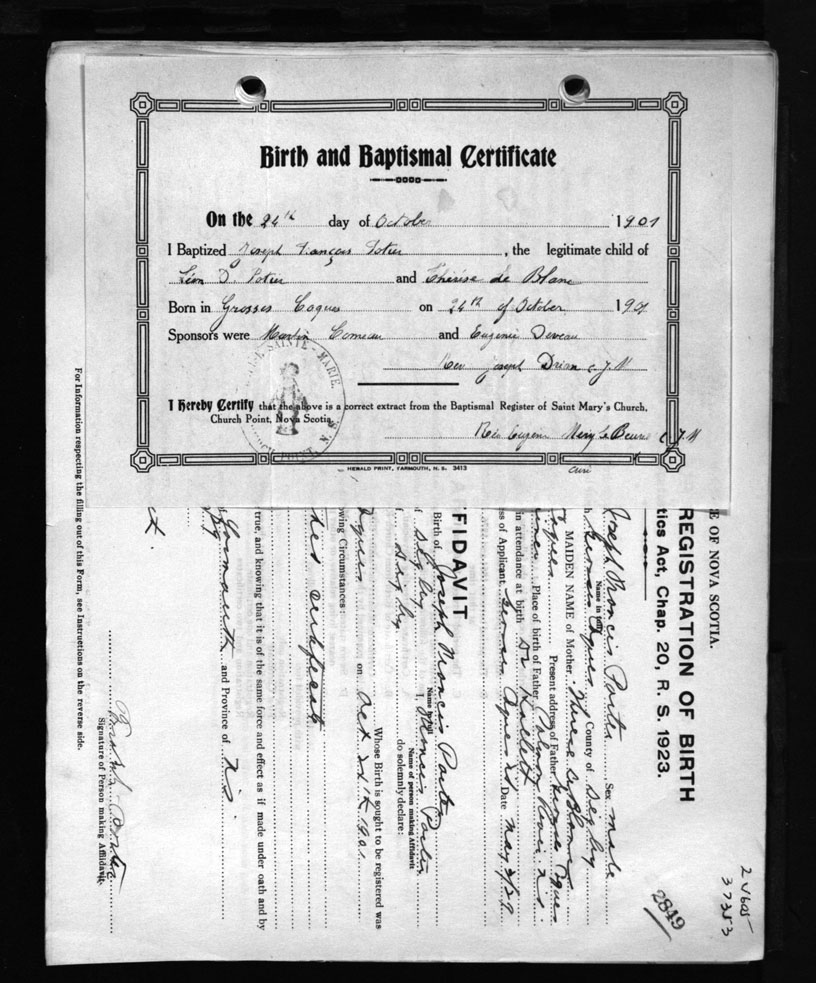 Birth and Baptismal Certificate
On the 24th day of October 1901
I Baptized Joseph François Potier, the legitimate child of
Léon D. Potier and Thérèse de Blanc
Born in Grosses Coques on 24th of October 1901
Sponsors were Martin Comeau and Eugenie Deveau
Rev Joseph Drian c.J.M
I Hereby Certify that the above is a correct extract from the Baptismal Register of Saint Mary's Church,
Church Point, Nova Scotia.
SAINTE-MARIE
Rev Eugene c.J.M
curé
HERALD PRINT, YARMOUTH, N. S. 3413
E OF NOVA SCOTIA.
REGISTRATION OF BIRTH
tics Act, Chap. 20, R. S. 1923.
Joseph Francis Porter Sex male
Name in full
County of Digby
MAIDEN NAME of Mother
Coques Present address of Father Coques
Place of birth of Father Salmon River N.S.
in attendance at birth Dr
ss of Applicant Date May 3/29
FIDAVIT
I, Francis Porter,
Name of person making Affidavit
do solemnly declare:
Birth of Joseph Francis Porter
Name in full
Digby
Digby
Whose Birth is sought to be registered was
on Oct. 24th 1901
owing Circumstances
certificate
true, and knowing that it is of the same force and effect as if made under oath and by
Yarmouth and Province of N.S.
Signature of Person making Affidavit.
For Information respecting the filling out of this Form, see Instructions on the reverse side.
2849
37353